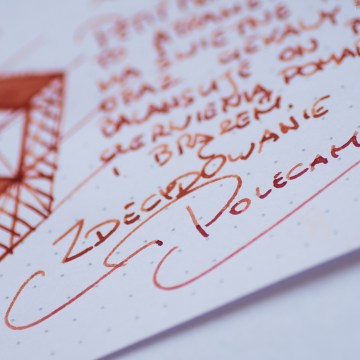 MA ŚWIETNE
ORAZ CIEKAWY
BALANSUJE ON
CZERWIENIĄ, POMAR
I BRĄZEM.
ZDECYDOWANIE
POLECAM